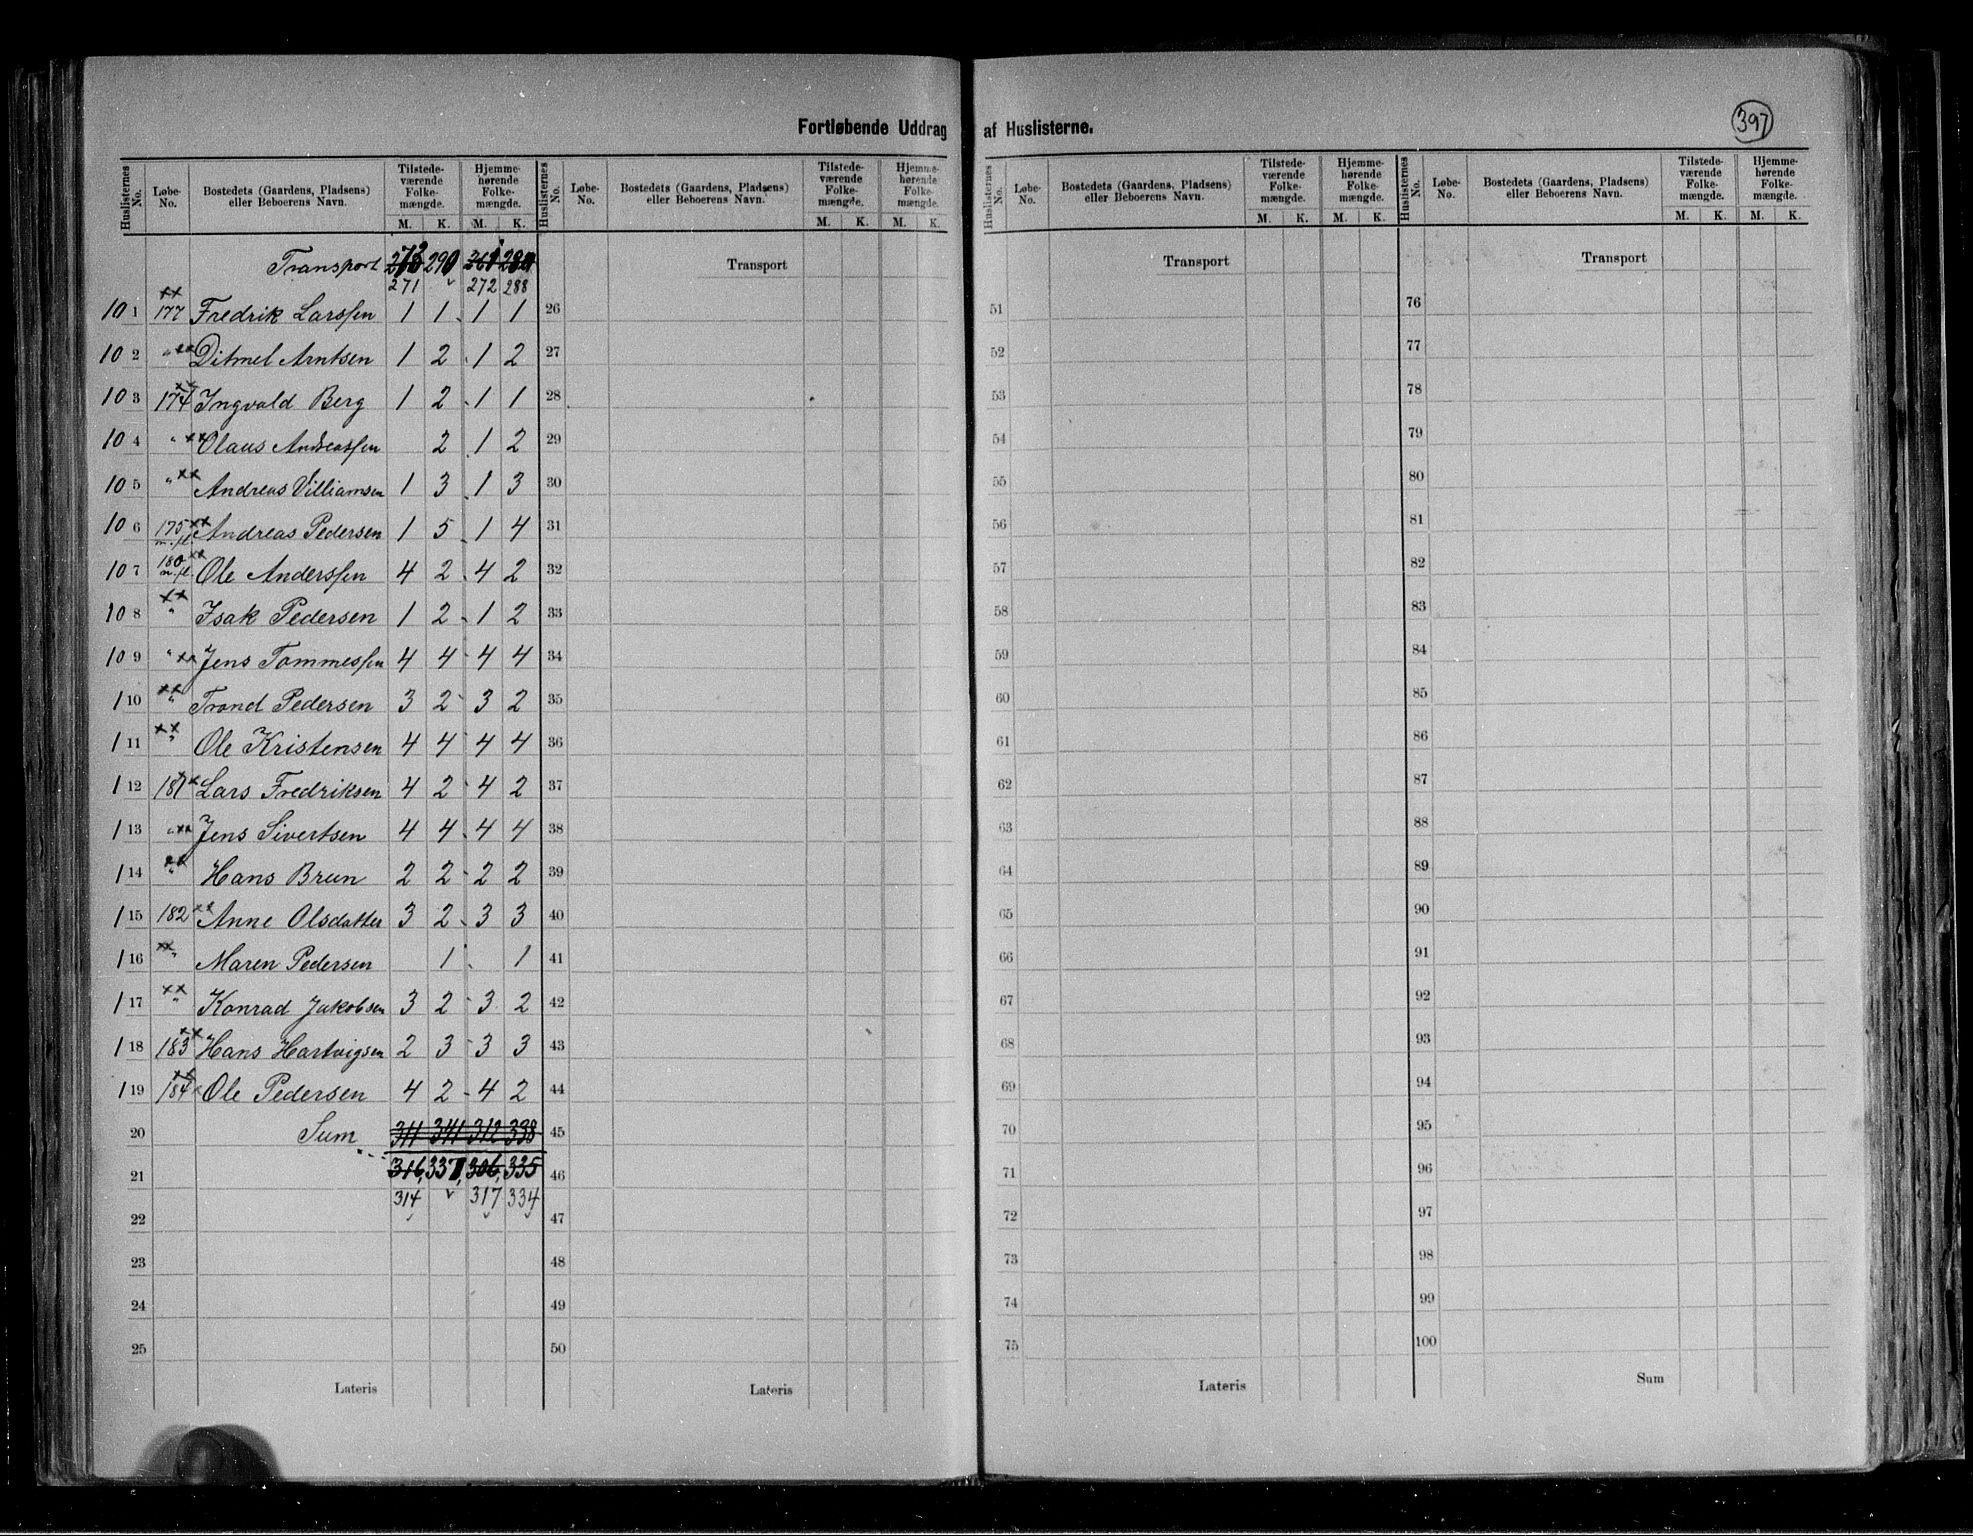 Fortløbende Uddrag af Huslisterne.
397
Huslisternes No. Løbe-No. Bostedets (Gaardens, Pladsens) eller Beboerens Navn. Tilstedeværende Folkemængde. M. K. Hjemmehørende Folkemængde. M. K.
Huslisternes No. Løbe-No. Bostedets (Gaardens, Pladsens) eller Beboerens Navn. Tilstedeværende Folkemængde. M. K. Hjemmehørende Folkemængde. M. K.
Huslisternes No. Løbe-No. Bostedets (Gaardens, Pladsens) eller Beboerens Navn. Tilstedeværende Folkemængde. M. K. Hjemmehørende Folkemængde. M. K.
Huslisternes No. Løbe-No. Bostedets (Gaardens, Pladsens) eller Beboerens Navn. Tilstedeværende Folkemængde. M. K. Hjemmehørende Folkemængde. M. K.
Transport 290
271 272 288
10 1 177 Fredrik Larssen 1 1 1 1
10 2 " Ditmel Arntsen 1 2 1 2
10 3 174 Ingvald Berg 1 2 1 1
10 4 " Olaus Andreassen 2 1 2
10 5 " Andreas Villiamsen 1 3 1 3
10 6 175 m.fl. Andreas Pedersen 1 5 1 4
10 7 180 m.fl. Ole Anderssen 4 2 4 2
10 8 " Isak Pedersen 1 2 1 2
10 9 " Jens Tommessen 4 4 4 4
1 10 " Trond Pedersen 3 2 3 2
1 11 " Ole Kristensen 4 4 4 4
1 12 181 Lars Fredriksen 4 2 4 2
1 13 " Jens Sivertsen 4 4 4 4
1 14 " Hans Brun 2 2 2 2
1 15 182 Anne Olsdatter 3 2 3 3
1 16 " Maren Pedersen 1 1
1 17 " Konrad Jakobsen 3 2 3 2
1 18 183 Hans Hartvigsen 2 3 3 3
1 19 184 Ole Pedersen 4 2 4 2
20 Sum 311 341 312 338
21 316 337 306 335
314 317 334
22
23
24
25
Lateris
Transport
26
27
28
29
30
31
32
33
34
35
36
37
38
39
40
41
42
43
44
45
46
47
48
49
50
Lateris
Transport
51
52
53
54
55
56
57
58
59
60
61
62
63
64
65
66
67
68
69
70
71
72
73
74
75
Lateris
Transport
76
77
78
79
80
81
82
83
84
85
86
87
88
89
90
91
92
93
94
95
96
97
98
99
100
Sum